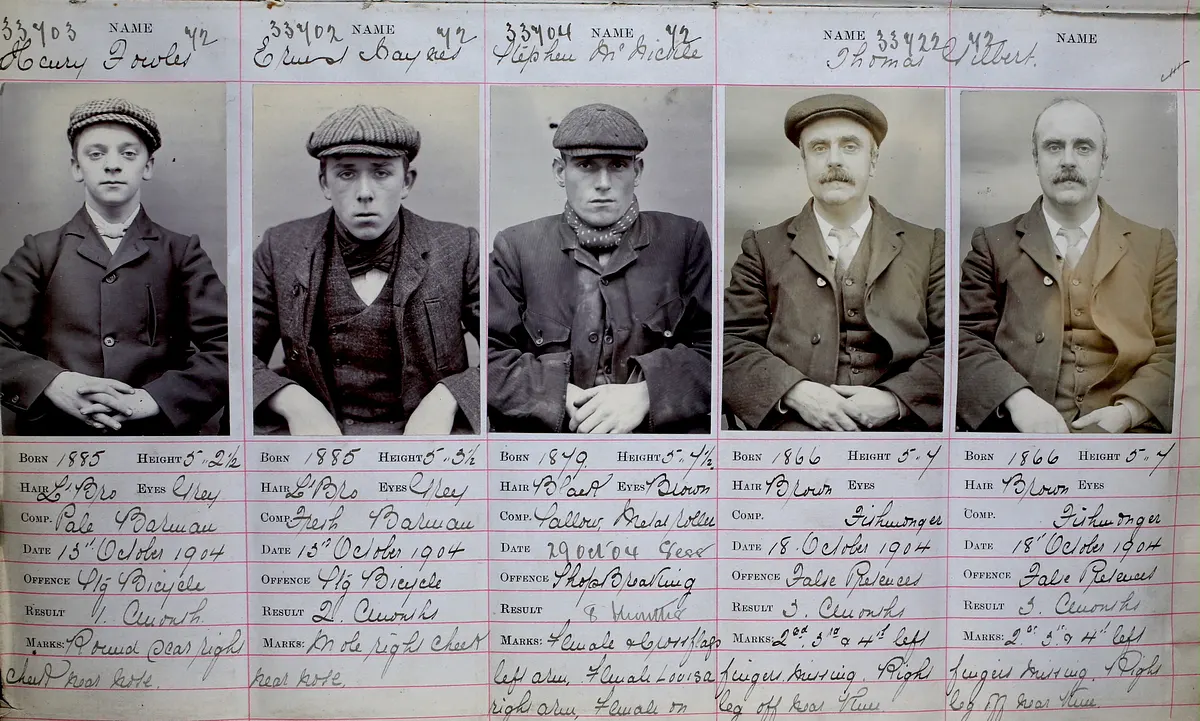 33703 NAME 72
Henry Fowles
BORN 1885 HEIGHT 5..2½
HAIR L'Bro EYES Grey
COMP. Pale Barman
DATE 13th October 1904
OFFENCE Stg Bicycle
RESULT 1. Cmonth
MARKS: Round scar right
cheek near nose.
33702 NAME 72
Ernest Haynes
BORN 1885 HEIGHT 5..3½
HAIR L'Bro EYES Grey
COMP. Fresh Barman
DATE 13th October 1904
OFFENCE Stg Bicycle
RESULT 2. Cmonths
MARKS: Mole right cheek
near nose.
33704 NAME 72
Stephen McNickle
BORN 1879. HEIGHT 5..7½
HAIR Black EYES Brown
COMP. Sallow, Metal roller
DATE 29 Oct '04 Sess
OFFENCE Shop Breaking
RESULT 8 Months
MARKS: Female & Cross flags
left arm, Female Louisa
right arm, Female on
NAME 33722 72 NAME
Thomas Gilbert.
BORN 1866 HEIGHT 5..7
HAIR Brown EYES
COMP. Fishmonger
DATE 18 October 1904
OFFENCE False Pretences
RESULT 3. Cmonths
MARKS: 2nd 3rd & 4th left
fingers missing. Right
leg off near knee.
BORN 1866 HEIGHT 5..7
HAIR Brown EYES
COMP. Fishmonger
DATE 18th October 1904
OFFENCE False Pretences
RESULT 3. Cmonths
MARKS: 2nd 3rd & 4th left
fingers missing. Right
leg off near knee.